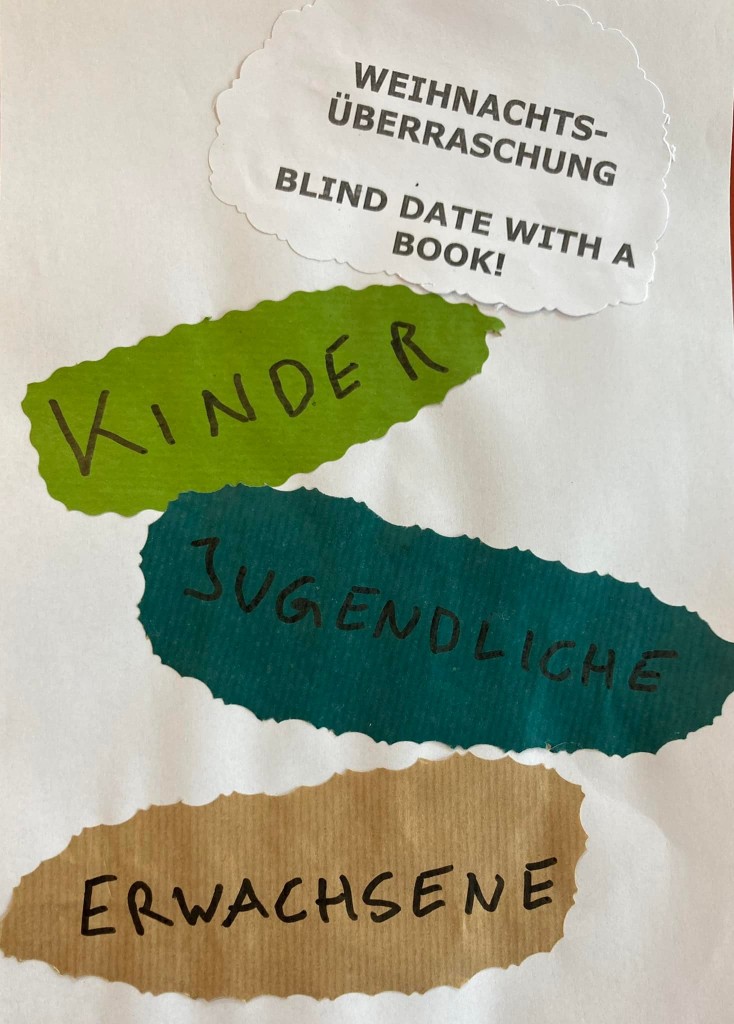 WEIHNACHTS-
ÜBERRASCHUNG
BLIND DATE WITH A
BOOK!
KINDER
JUGENDLICHE
ERWACHSENE